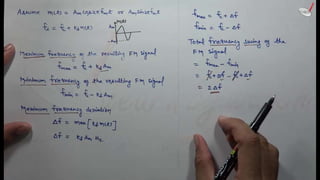 Assume m(t) = Am cos2πfmt or Am sin2πfmt
fi = fc + kf m(t)
m(t)
Maximum frequency of the resulting FM signal
fmax = fc + kf Am
Minimum frequency of the resulting FM signal
fmin = fc - kf Am
Maximum frequency deviation
Δf = max [kf m(t)]
Δf = kf Am Hz
fmax = fc + Δf
fmin = fc - Δf
Total frequency swing of the
FM signal
= fmax - fmin
= fc + Δf - fc + Δf
= 2Δf